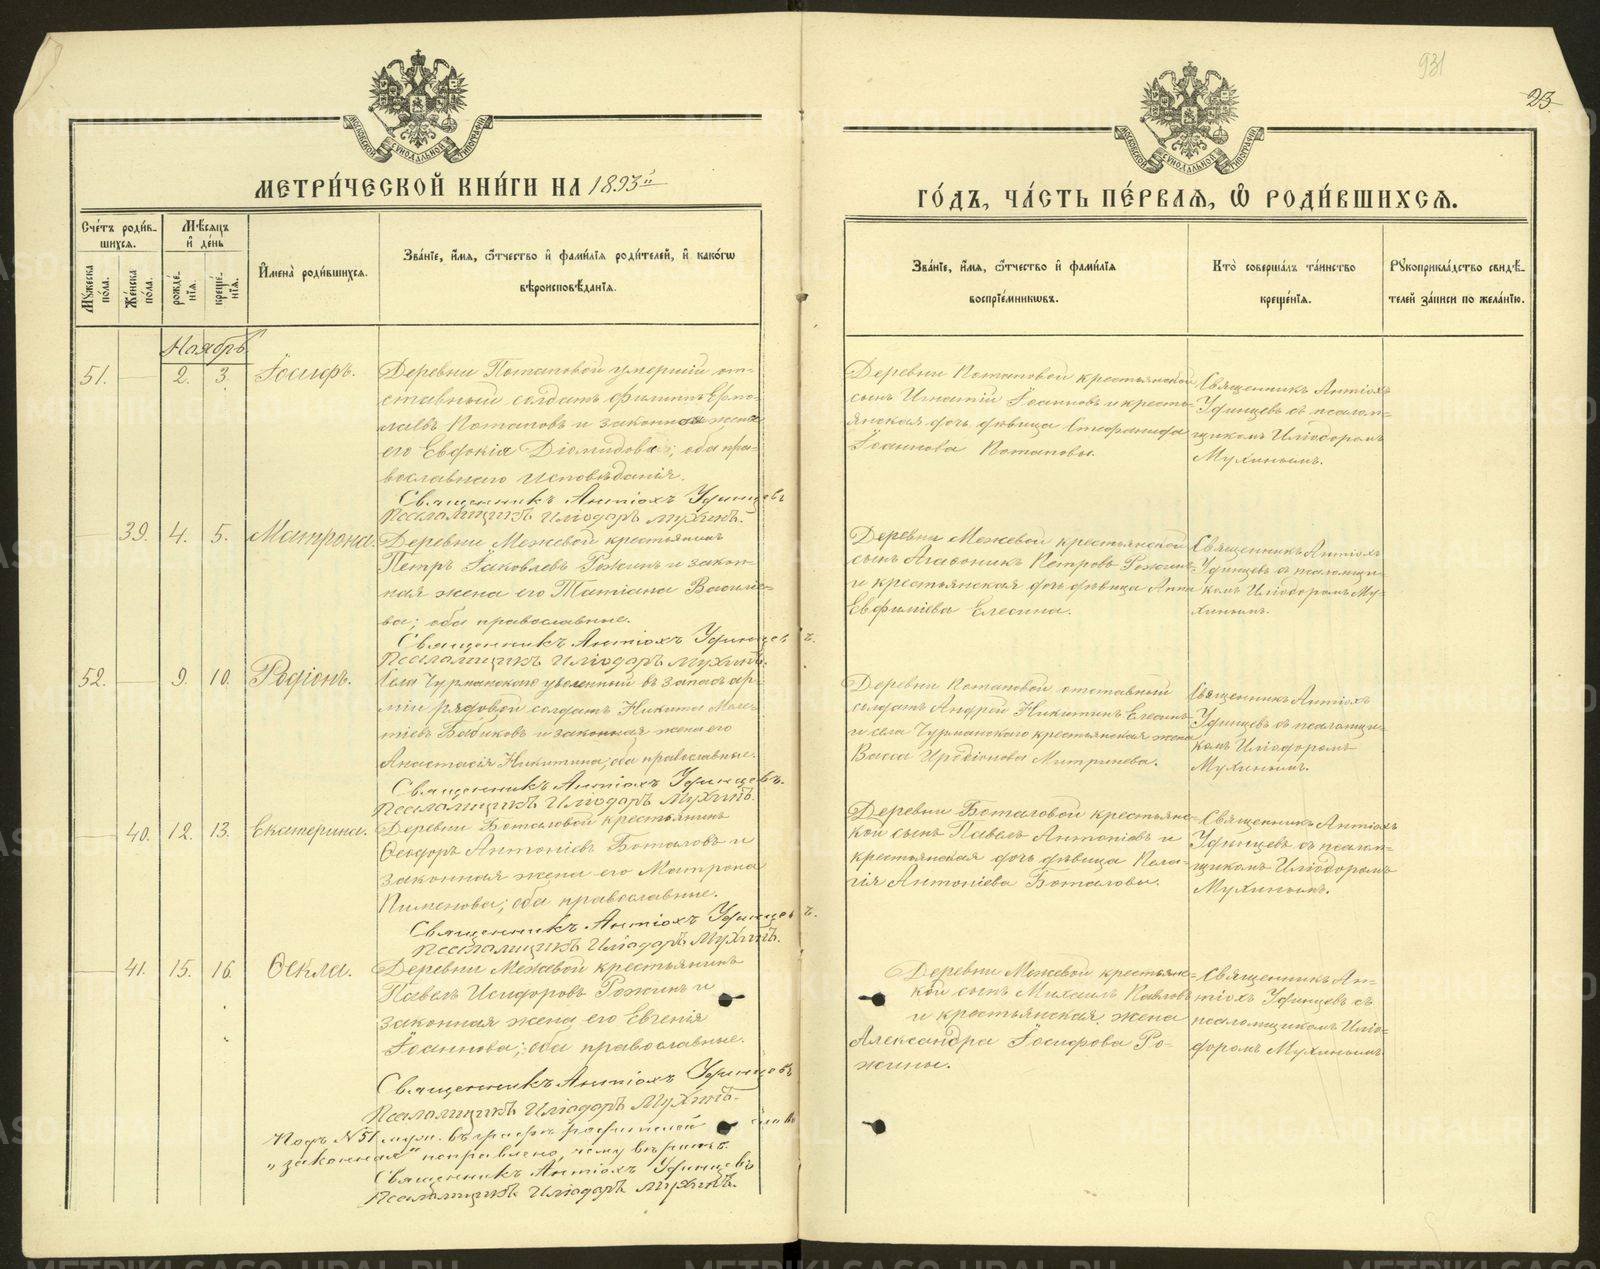 931
23
МОСКОВСКОЙ СѴНОДАЛЬНОЙ ТИПОГРАФІИ
МОСКОВСКОЙ СѴНОДАЛЬНОЙ ТИПОГРАФІИ
МЕТРИ́ЧЕСКОЙ КНИ́ГИ НА 1893й
ГО́ДЪ, ЧА́СТЬ ПЕ́РВАЯ, Ѽ РОДИ́ВШИХСЯ.
Сче́тъ роди́в-
шихся.
Мꙋ́жеска по́ла.
Же́нска по́ла.
Мѣ́сяцъ
и҆ де́нь
рожде́-
нїѧ.
креще́-
нїѧ.
И҆мена̀ роди́вшихся.
Зва́нїе, и҆́мѧ, ѻ҆́тчество и҆ фами́лїѧ роди́телей, и҆ како́гѡ
вѣроисповѣ́данїѧ.
Зва́нїе, и҆́мѧ, ѻ҆́тчество и҆ фами́лїѧ
воспрїе́мникѡвъ.
Кто̀ соверша́лъ та́инство
креще́нїѧ.
Рꙋкоприкла́дство свидѣ́-
телей за́писи по жела́нїю.
Ноябрь
51.
2.
3.
Іосифъ.
Деревни Потаповой умершій от-
ставный солдатъ Филиппъ Ермо-
лаевъ Потаповъ и законная жена
его Евдокія Діомидова; оба пра-
вославнаго исповѣданія.
Священникъ Антіохъ Удинцевъ
Псаломщикъ Иліодоръ Мухинъ.
Деревни Потаповой крестьянской
сынъ Игнатій Іоанновъ и кресть-
янская дочь дѣвица Стефанида
Іоаннова Потаповы.
Священникъ Антіохъ
Удинцевъ съ псалом-
щикомъ Иліодоромъ
Мухинымъ.
39.
4.
5.
Матрона.
Деревни Межевой крестьянинъ
Петръ Іаковлевъ Рожинъ и закон-
ная жена его Татіана Василье-
ва; оба православные.
Священникъ Антіохъ Удинцевъ.
Псаломщикъ Иліодоръ Мухинъ.
Деревни Межевой крестьянской
сынъ Агафоникъ Петровъ Рожинъ
и крестьянская дочь дѣвица Анна
Евфиміева Елесина.
Священникъ Антіохъ
Удинцевъ съ псаломщи-
комъ Иліодоромъ Му-
хинымъ.
52.
9.
10.
Родіонъ.
Села Чурманскаго уволенный въ запасъ ар-
міи рядовой солдатъ Никита Моис-
Бабиковъ и законная жена его
Анастасія Никитина; оба православные.
Священникъ Антіохъ Удинцевъ.
Псаломщикъ Иліодоръ Мухинъ.
Деревни Потаповой отставный
солдатъ Андрей Никитинъ Елесинъ
и села Чурманскаго крестьянская жена
Васса Иродіонова Митричева.
Священникъ Антіохъ
Удинцевъ съ псаломщи-
комъ Иліодоромъ
Мухинымъ.
40.
12.
13.
Екатерина.
Деревни Боталовой крестьянинъ
Ѳеодоръ Антоніевъ Боталовъ и
законная жена его Матрона
Пименова; оба православные.
Священникъ Антіохъ Удинцевъ.
Псаломщикъ Иліодоръ Мухинъ.
Деревни Боталовой крестьянс-
кой сынъ Павелъ Антоніевъ и
крестьянская дочь дѣвица Пела-
гія Антоніева Боталовы.
Священникъ Антіохъ
Удинцевъ съ псалом-
щикомъ Иліодоромъ
Мухинымъ.
41.
15.
16.
Ѳекла.
Деревни Межевой крестьянинъ
Павелъ Исидоровъ Рожинъ и
законная жена его Евгенія
Іоаннова; оба православные.
Священникъ Антіохъ Удинцевъ
Псаломщикъ Иліодоръ Мухинъ.
Деревни Межевой крестьянс-
кой сынъ Михаилъ Павловъ
и крестьянская жена
Александра Іосифова Ро-
жины.
Священникъ Ан-
тіохъ Удинцевъ съ
псаломщикомъ Иліо-
доромъ Мухинымъ.
Подъ №51 муж. въ графѣ родителей слово
„законная" исправлено, чему вѣримъ.
Священникъ Антіохъ Удинцевъ
Псаломщикъ Иліодоръ Мухинъ.